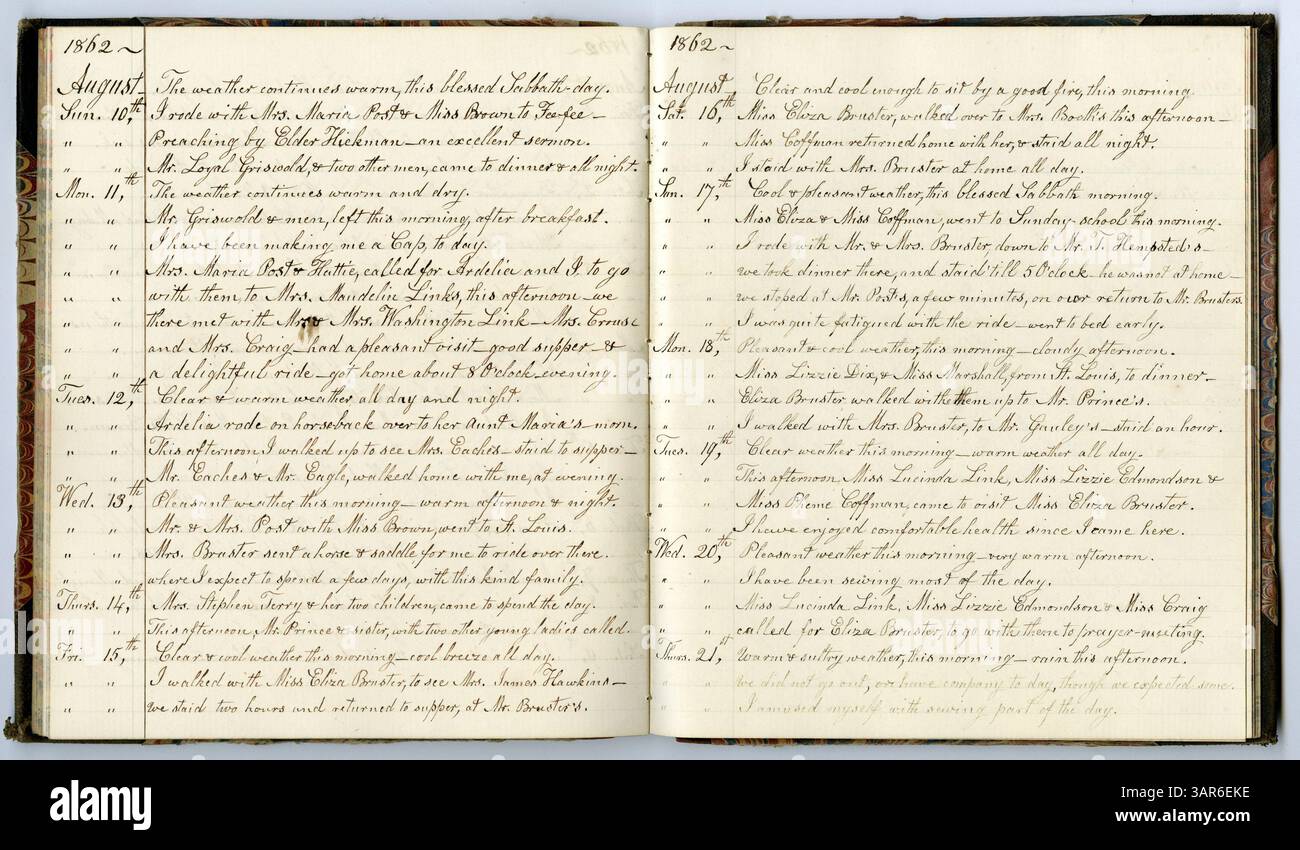 1862~
August
The weather continues warm, this blessed Sabbath-day.
Sun. 10,th I rode with Mrs. Maria Post & Miss Brown to Fee-fee—
" " Preaching by Elder Hickman—an excellent sermon.
" " Mr. Loyal Griswold, & two other men, came to dinner & all night.
Mon. 11,th The weather continues warm and dry.
" " Mr. Griswold & men, left this morning, after breakfast.
" " I have been making me a Cap, to day.
" " Mrs. Maria Post & Hattie, called for Ardelia and I. to go
" " with them, to Mrs. Maudelin Links, this afternoon—we
" " there met with Mr. & Mrs. Washington Link—Mrs. Crouse
" " and Mrs. Craig—had a pleasant visit—good supper—&
" " a delightful ride—got home about 8 O'clock—evening.
Tues. 12,th Clear & warm weather all day and night.
" " Ardelia rode on horseback over to her Aunt Maria's—morn.
" " This afternoon, I walked up to see Mrs. Eaches—staid to supper—
" " Mr. Eaches & Mr. Eagle, walked home with me, at evening.
Wed. 13,th Pleasant weather this morning—warm afternoon & night.
" " Mr. & Mrs. Post with Miss Brown, went to St. Louis.
" " Mrs. Bruster sent a horse & saddle for me to ride over there.
" " where I expect to spend a few days, with this kind family.
Thurs. 14,th Mrs. Stephen Terry & her two children, came to spend the day.
" " This afternoon, Mr. Prince & sister, with two other young ladies called.
Fri. 15,th Clear & cool weather this morning—cool breeze all day.
" " I walked with Miss Eliza Bruster, to see Mrs. James Hawkins—
" " we staid two hours and returned to supper, at Mr. Bruster's.
1862~
August, Clear and cool enough to sit by a good fire, this morning.
Sat. 16,th Miss Eliza Bruster, walked over to Mrs. Booth's this afternoon—
" " Miss Coffman returned home with her, & staid all night.
" " I staid with Mrs. Bruster at home all day.
Sun. 17,th Cool & pleasant weather, this blessed Sabbath morning.
" " Miss Eliza & Miss Coffman, went to Sunday-school this morning.
" " I rode with Mr. & Mrs. Bruster, down to Mr. T. Hempsted's—
" " we took dinner there, and staid 'till 5 O'clock—he was not at home—
" " we stoped at Mr. Post's, a few minutes, on our return to Mr. Brusters.
" " I was quite fatigued with the ride—went to bed early.
Mon. 18,th Pleasant & cool weather, this morning—cloudy afternoon.
" " Miss Lizzie Dix, & Miss Marshall, from St. Louis, to dinner—
" " Eliza Bruster walked with them up to Mr. Prince's.
" " I walked with Mrs. Bruster, to Mr. Gauley's—staid an hour.
Tues. 19,th Clear weather this morning—warm weather all day.
" " This afternoon, Miss Lucinda Link, Miss Lizzie Edmondson &
" " Miss Pheme Coffman, came to visit Miss Eliza Bruster.
" " I have enjoyed comfortable health since I came here.
Wed. 20,th Pleasant weather this morning—very warm afternoon.
" " I have been sewing most of the day.
" " Miss Lucinda Link, Miss Lizzie Edmondson & Miss Craig
" " called for Eliza Bruster, to go with them to prayer-meeting.
Thurs. 21,st Warm & sultry weather, this morning—rain this afternoon.
" " we did not go out, or have company to day, though we expected some.
" " I amused myself with sewing part of the day.
alamy
alamy
Image ID: 3AR6EKE
www.alamy.com